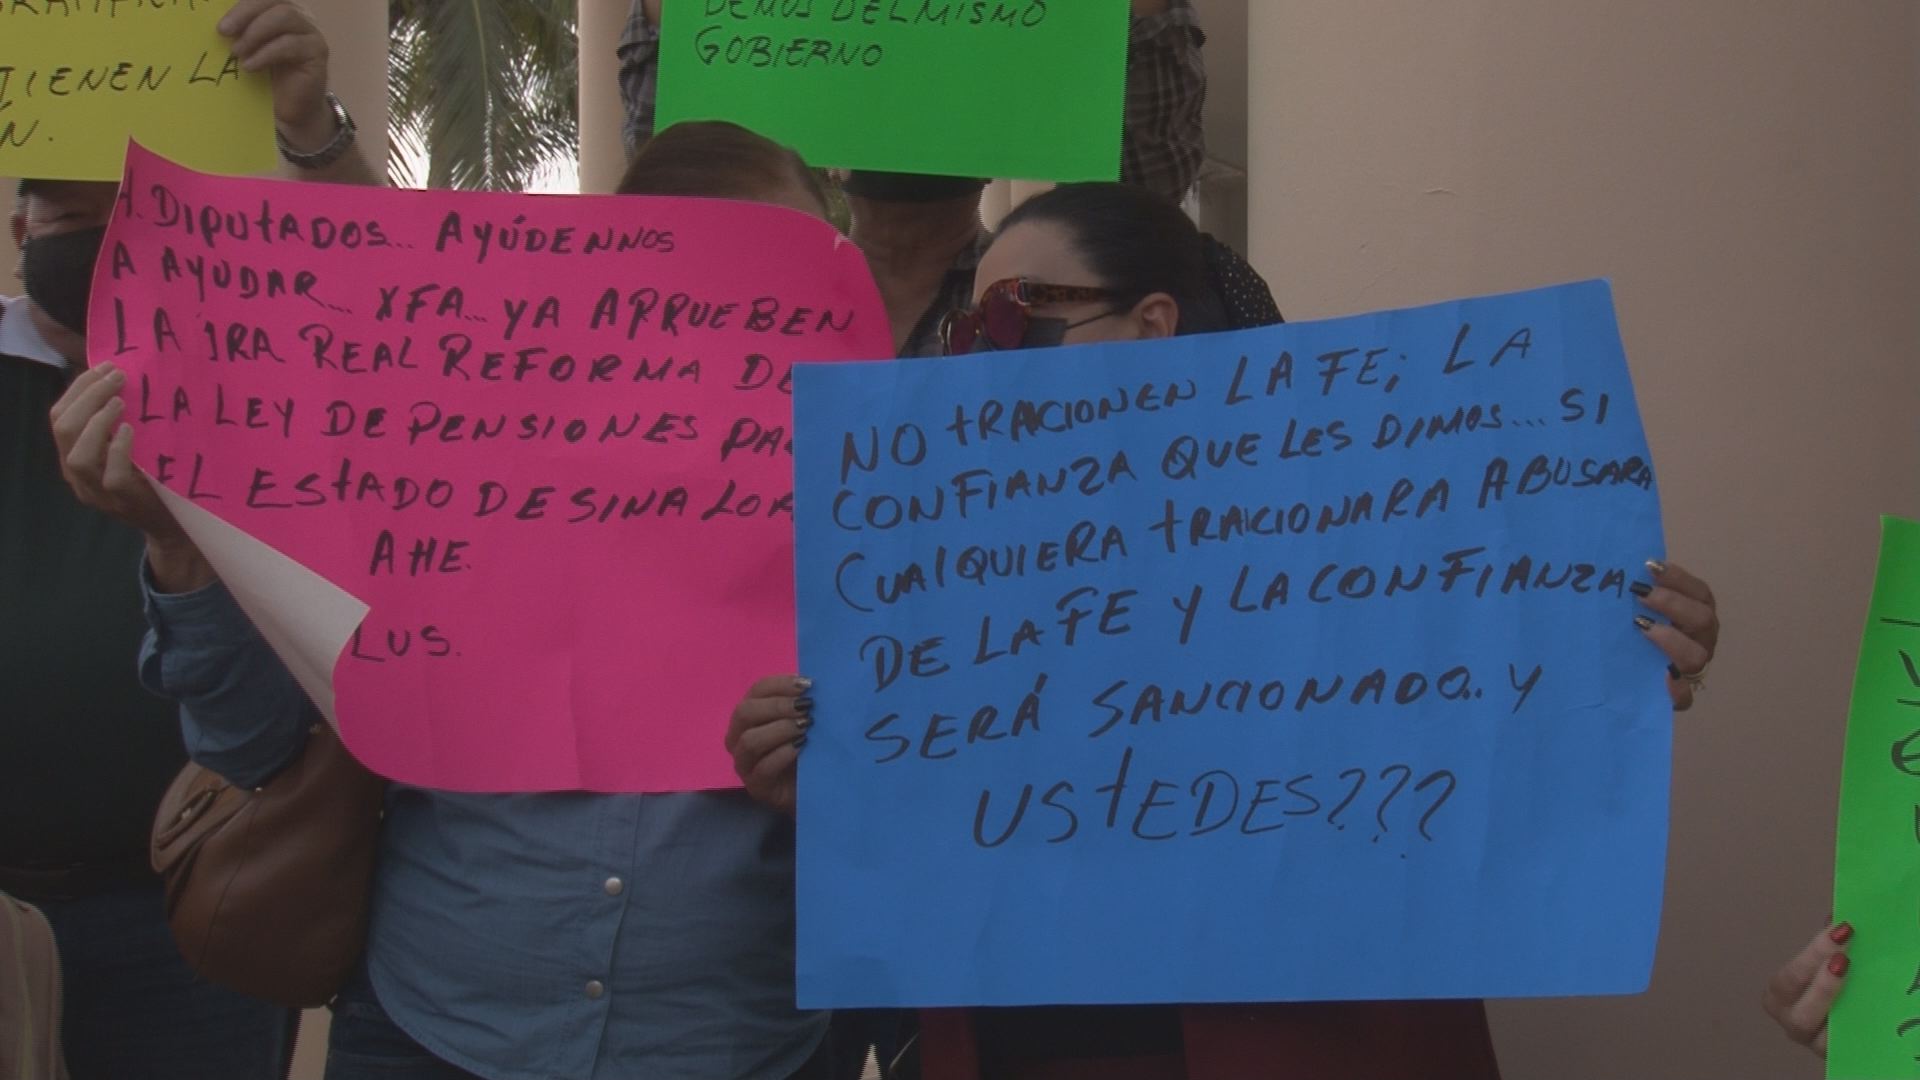 TIENEN LA
N.
DEMOS DEL MISMO
GOBIERNO
H. DIPUTADOS... AYÚDENNOS
A AYUDAR... XFA... YA APRUEBEN
LA 1RA REAL REFORMA DE
LA LEY DE PENSIONES PA
EL ESTADO DE SINALOA
AHE.
LUS.
NO TRAICIONEN LA FE; LA
CONFIANZA QUE LES DIMOS... SI
CUALQUIERA TRAICIONARA ABUSARA
DE LA FE Y LA CONFIANZA
SERÁ SANCIONADO.. Y
USTEDES???